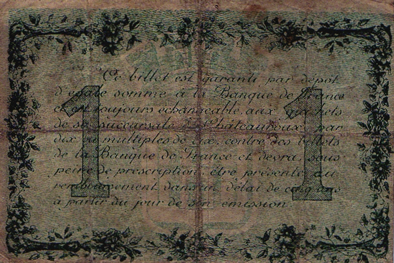 Ce billet est garanti par dépôt
d'égale somme à la Banque de France
et est toujours échangeable aux guichets
de sa succursale de Châteauroux par
dix ou multiples de dix, contre des billets
de la Banque de France et devra sous
peine de prescription être présenté au
remboursement dans un délai de cinq ans
à partir du jour de son émission.
1 1